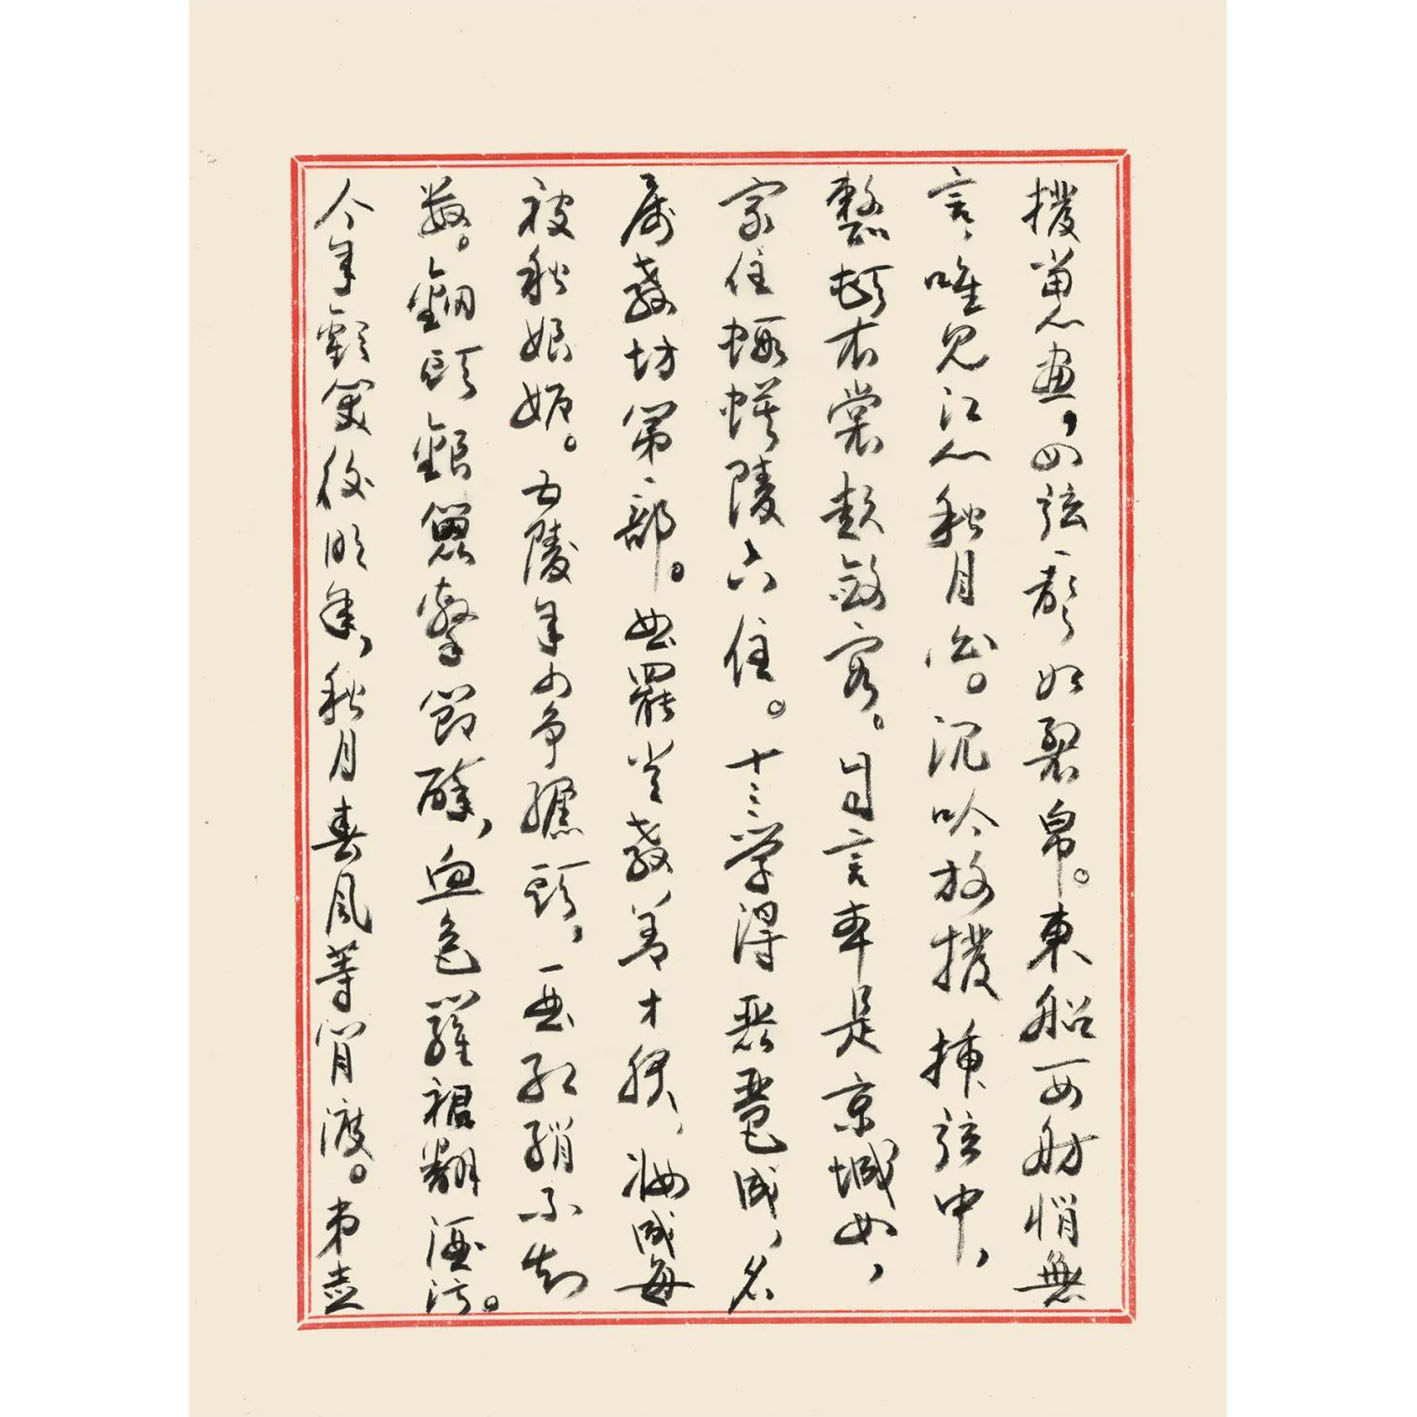 撥當心畫，四弦一聲如裂帛。東船西舫悄無
言，唯見江心秋月白。沉吟放撥插弦中，
整頓衣裳起斂容。自言本是京城女，
家住蝦蟆陵下住。十三学得琵琶成，名
屬教坊第一部。曲罷曾教善才服，妝成每
被秋娘妬。五陵年少爭纏頭，一曲紅綃不知
數。鈿頭銀篦擊節碎，血色羅裙翻酒污。
今年歡笑復明年，秋月春風等閒渡。弟走